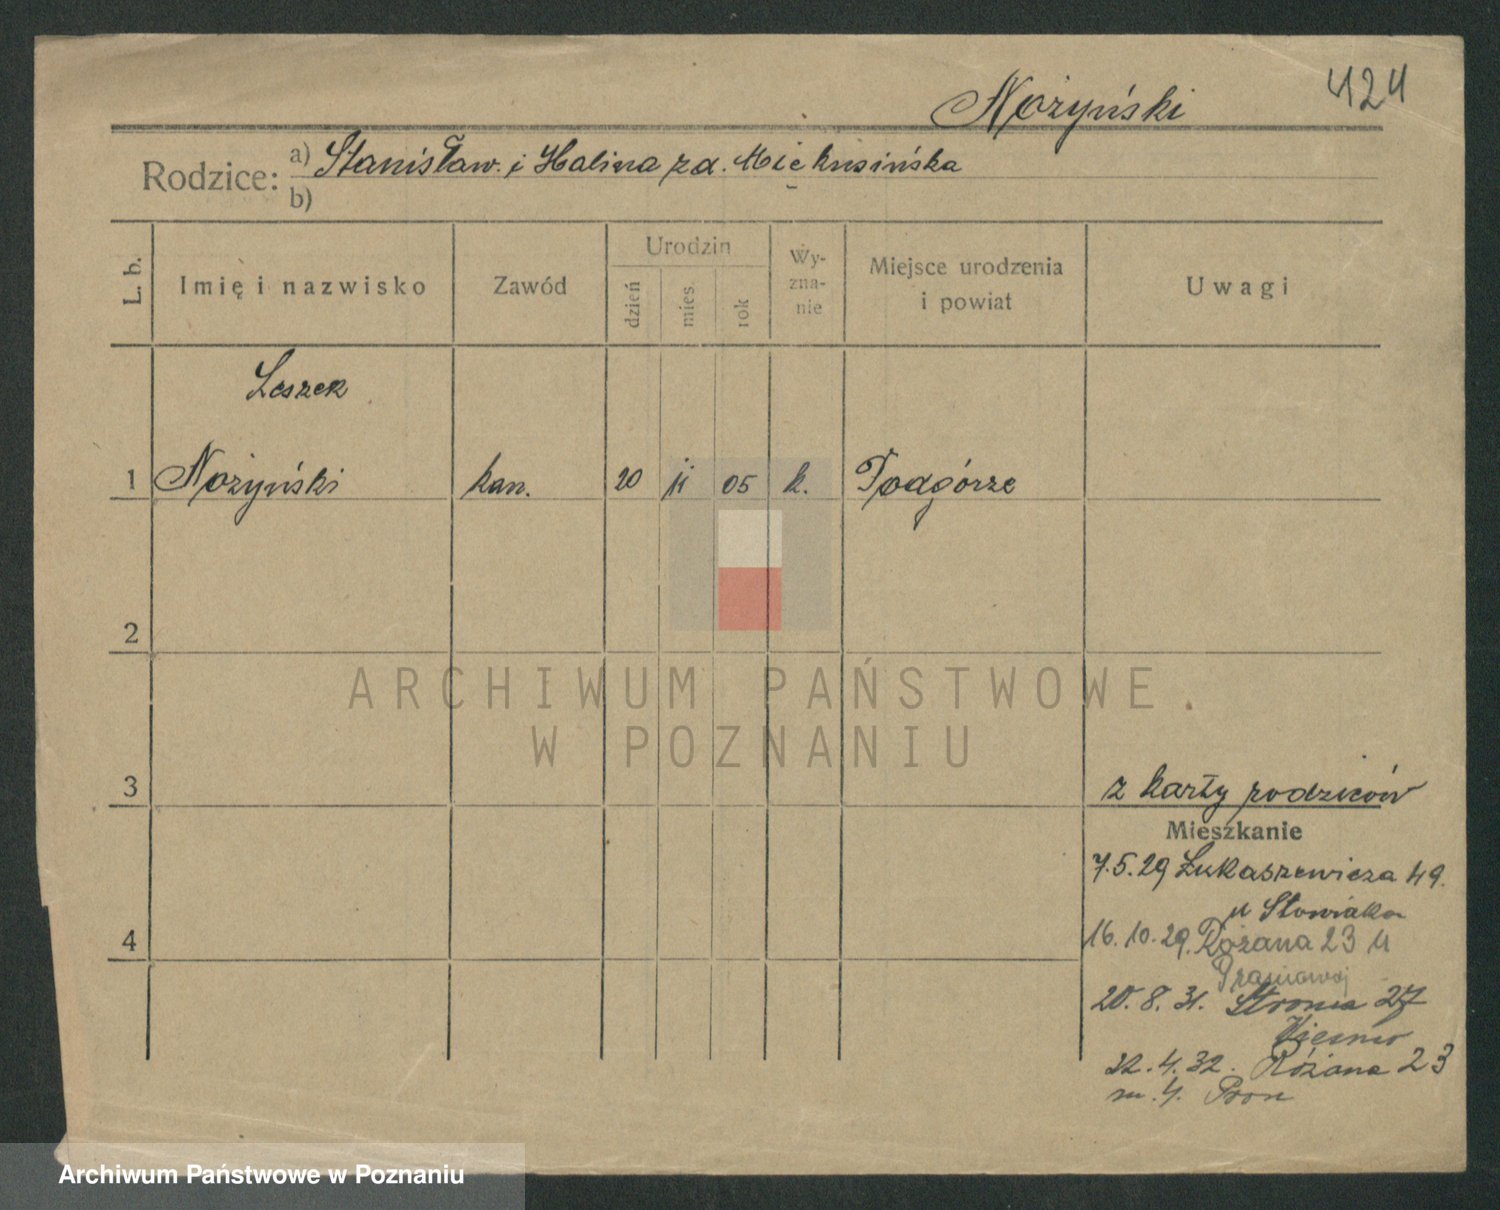 Nożyński
424
Rodzice: a) Stanisław. i Halina z d. Miekusińska
b)
L. b.
Imię i nazwisko
Zawód
Urodzin
dzień
mies.
rok
Wy-
zna-
nie
Miejsce urodzenia
i powiat
Uwagi
Leszek
1 Nożyński kan. 20 11 05 k. Podgórze
2
3
4
z karty rodziców
Mieszkanie
7.5.29 Łukaszewicza 49.
u Słowiaka
16.10.29. Różana 23 u
20.8.31. Stroma 27
22.4.32. Różana 23
m. 4.
ARCHIWUM PAŃSTWOWE
W POZNANIU
Archiwum Państwowe w Poznaniu